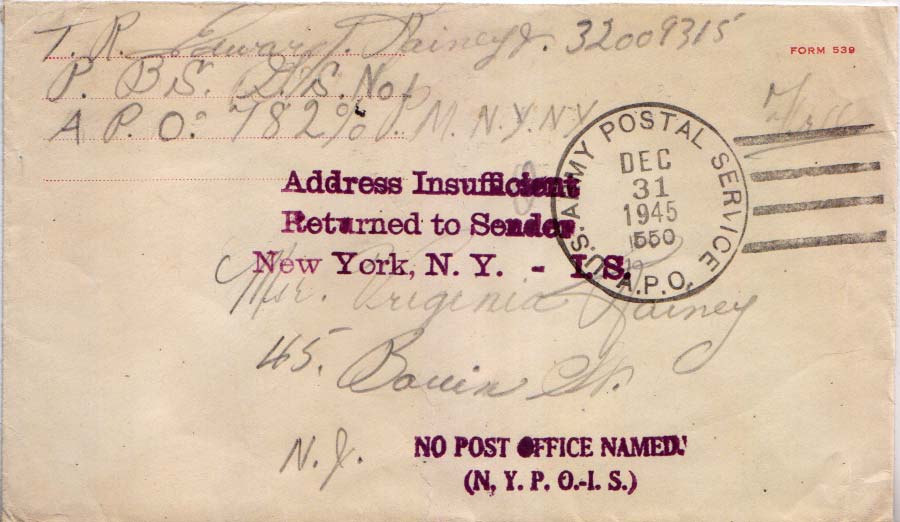 T. R. Edward J. Rainey Jr. 32009315
FORM 539
P. B. S. D. S. No 1
A P. O. 782 % P. M. N. Y. N Y
U.S. ARMY POSTAL SERVICE
DEC
31
1945
550
A.P.O.
Address Insufficient
Returned to Sender
New York, N. Y. - I. S.
Mrs. Virginia Rainey
45. St.
N. J.
NO POST OFFICE NAMED.
(N. Y. P. O.-I. S.)